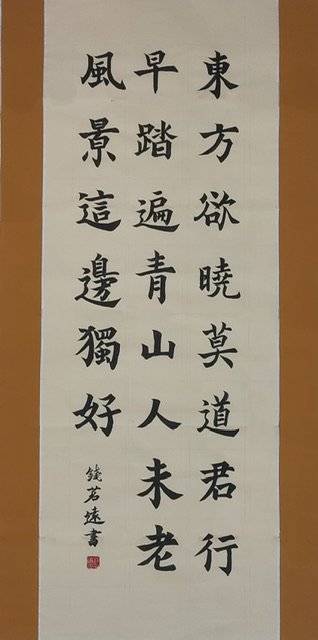 東方欲曉莫道君行
早踏遍青山人未老
風景這邊獨好
錢茗遠書